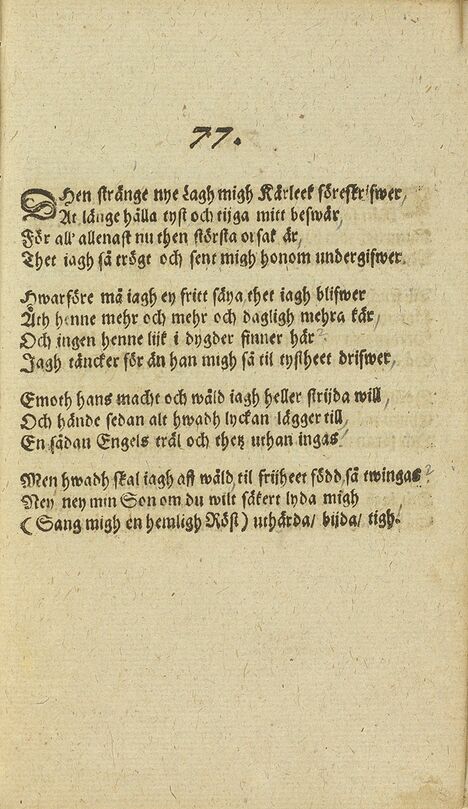 77.
DHen stränge nye Lagh migh Kärleek föreskrifwer/
At länge hålla tyst och tijga mitt beswär/
För all' allenast nu then största orsak är/
Thet iagh så trögt och sent migh honom undergifwer.
Hwarföre må iagh ey fritt säya thet iagh blifwer
Åth henne mehr och mehr och dagligh mehra kär/
Och ingen henne lijk i dygder finner här?
Jagh täncker för än han migh så til tystheet drifwer/
Emoth hans macht och wåld iagh heller strijda will/
Och hände sedan alt hwadh lyckan lägger till/
En sådan Engels träl och thetz uthan ingas!
Men hwadh skal iagh aff wåld til frijheet född så twingas?
Ney ney min Son om du wilt säkert lyda migh
(Sang migh en hemligh Röst) uthärda/ bijda/ tigh.